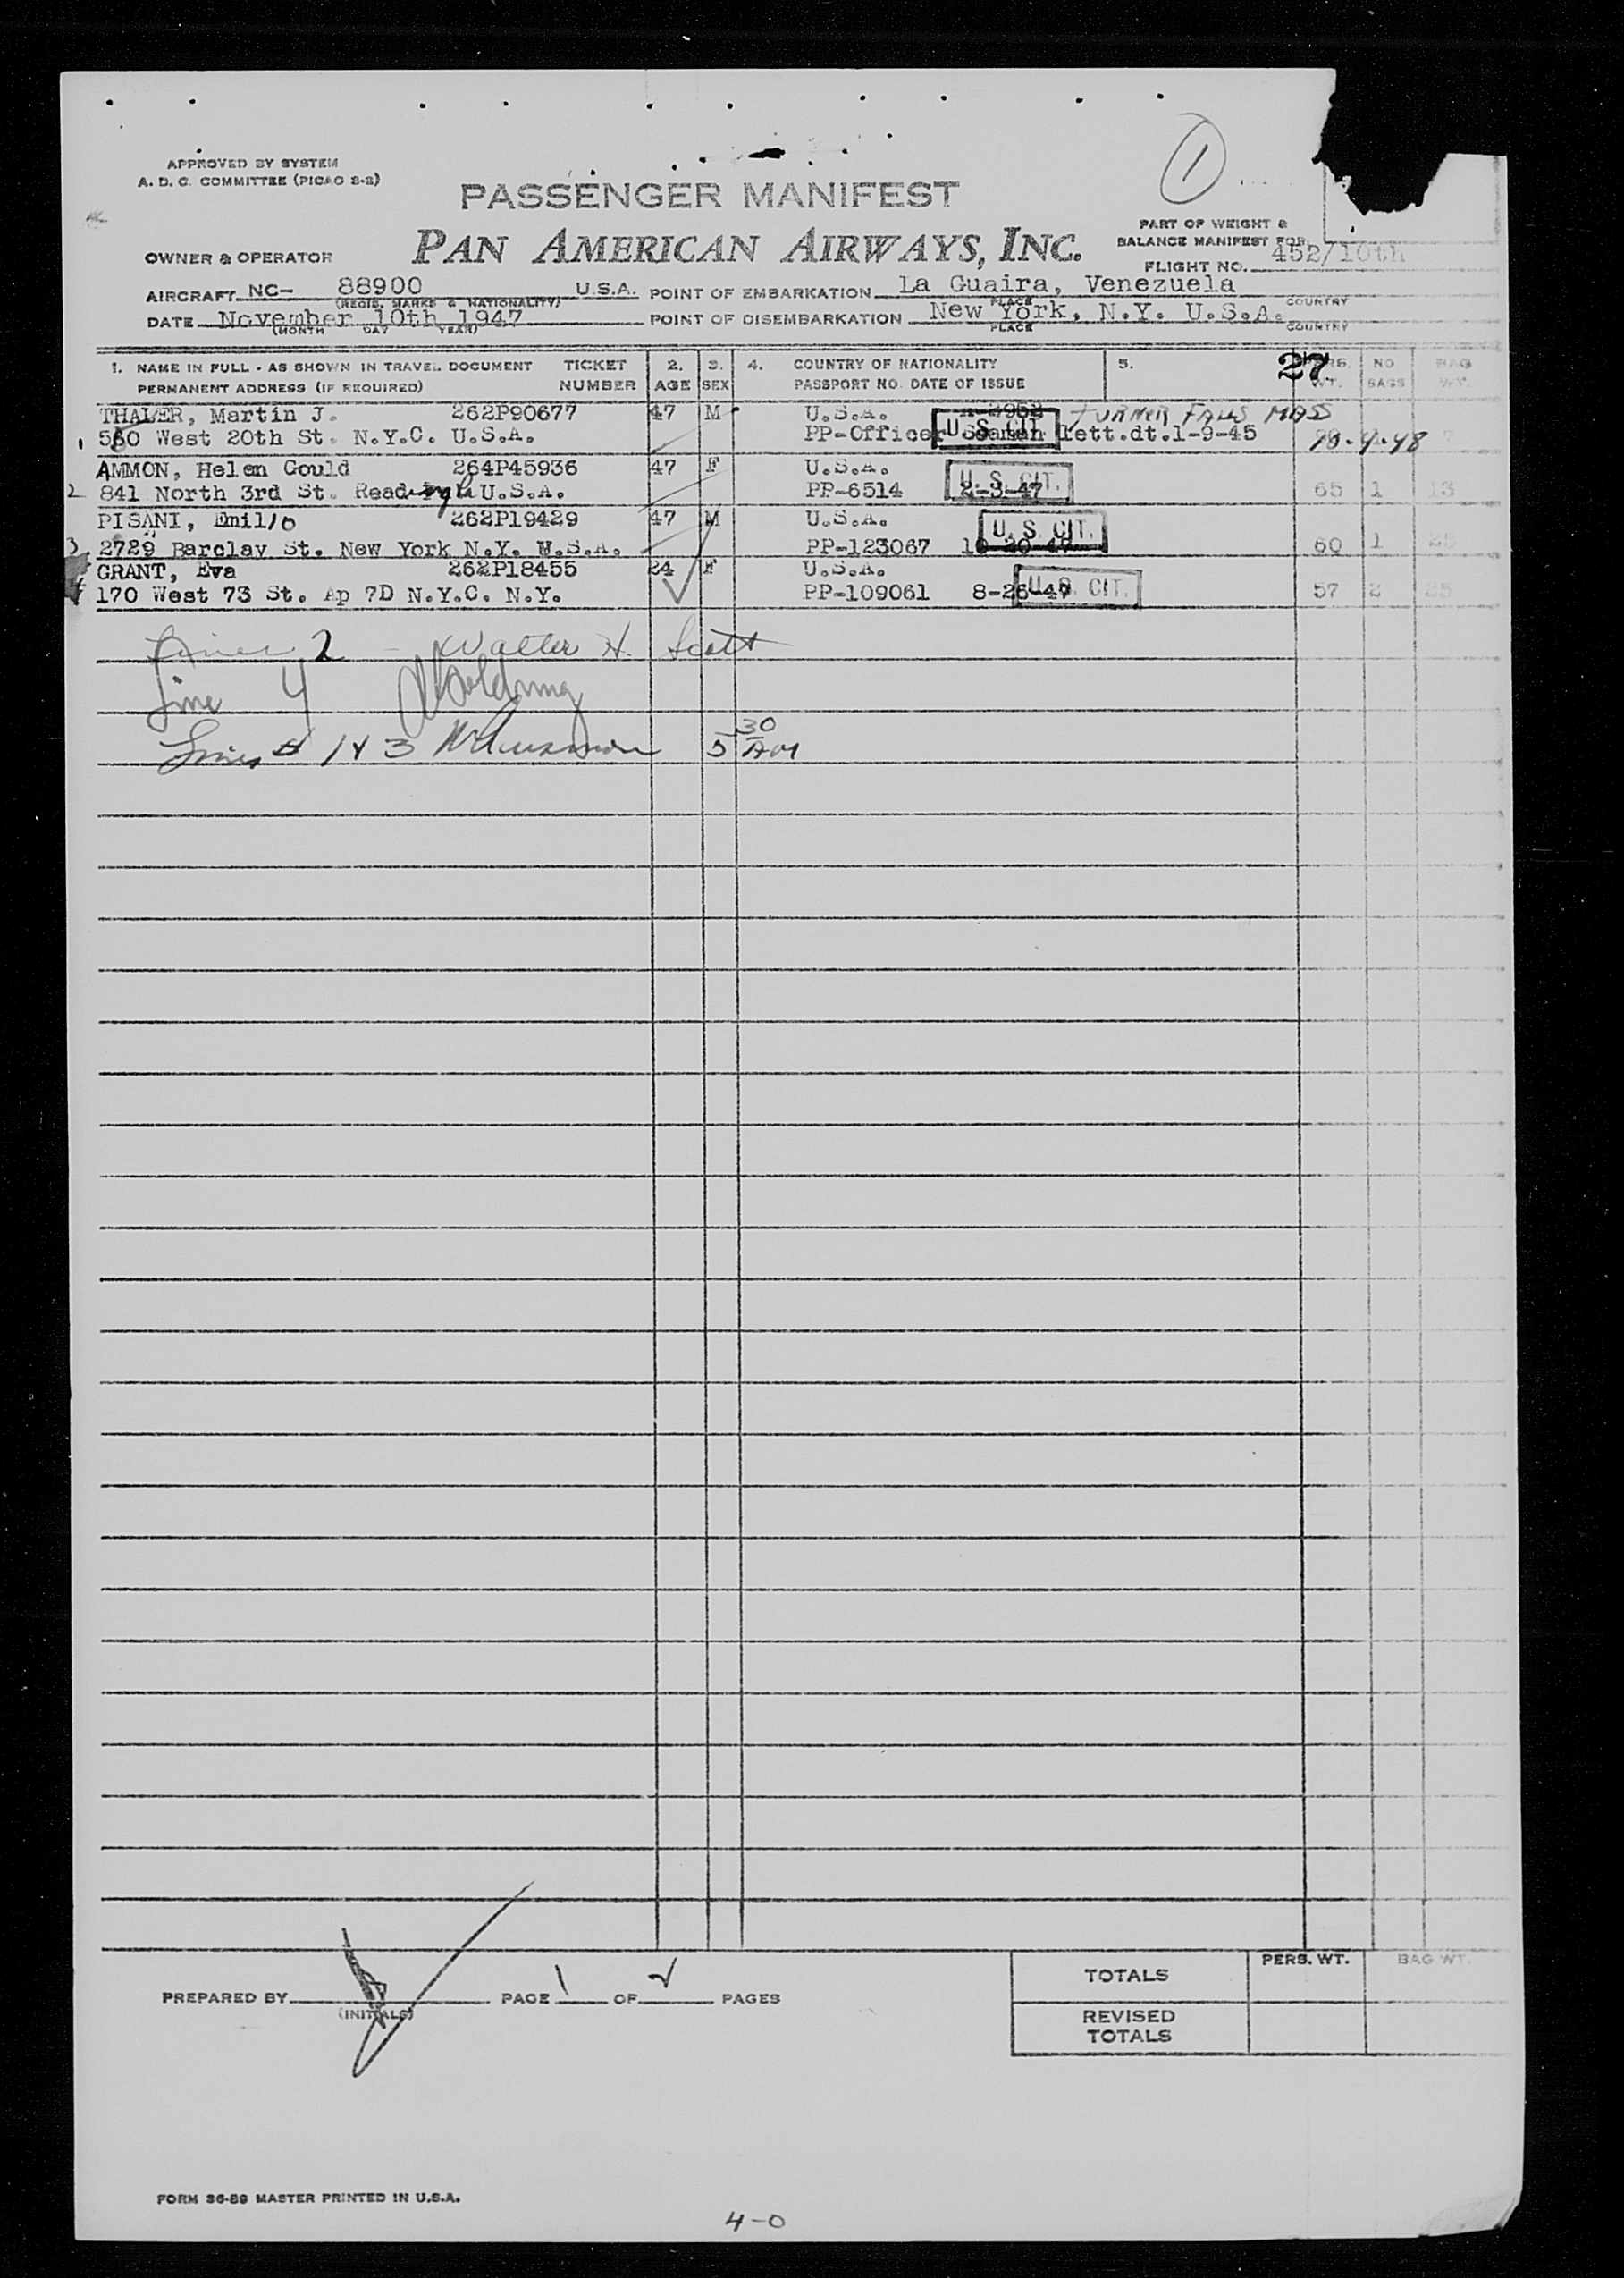 1
APPROVED BY SYSTEM
A. D. C. COMMITTEE (PICAO 2-2)
PASSENGER MANIFEST
PART OF WEIGHT &
BALANCE MANIFEST FOR
OWNER & OPERATOR
PAN AMERICAN AIRWAYS, INC.
FLIGHT NO. 452/10th
AIRCRAFT NC- 88900 U.S.A. POINT OF EMBARKATION La Guaira, Venezuela
(REGIS. MARKS & NATIONALITY) PLACE COUNTRY
DATE November 10th 1947 POINT OF DISEMBARKATION New York, N.Y. U.S.A.
(MONTH DAY YEAR) PLACE COUNTRY
27
1. NAME IN FULL - AS SHOWN IN TRAVEL DOCUMENT TICKET 2. 3. 4. COUNTRY OF NATIONALITY 5. PERS. NO BAG
PERMANENT ADDRESS (IF REQUIRED) NUMBER AGE SEX PASSPORT NO. DATE OF ISSUE WT. BAGS WT.
THALER, Martin J. 262P90677 47 M U.S.A. TURNER FALLS MASS
1 560 West 20th St. N.Y.C. U.S.A. PP-Officer Seaman lett.dt.1-9-45 U. S. CIT. 10-4-48
AMMON, Helen Gould 264P45936 47 F U.S.A.
2 841 North 3rd St. Reading Pa U.S.A. PP-6514 2-3-47 U. S. CIT. 65 1 13
PISANI, Emilio 262P19429 47 M U.S.A.
3 2729 Barclay St. New York N.Y. U.S.A. PP-123067 U. S. CIT. 60 1 25
GRANT, Eva 262P18455 24 F U.S.A.
4 170 West 73 St. Ap 7D N.Y.C. N.Y. PP-109061 8-26-47 U. S. CIT. 57 2 25
Line 2 - Walter H. Scott
Line 4
Lines # 1 & 3 5 30 AM
PREPARED BY (INITIALS) PAGE 1 OF 2 PAGES
TOTALS PERS. WT. BAG WT.
REVISED
TOTALS
FORM 36-89 MASTER PRINTED IN U.S.A.
4-0